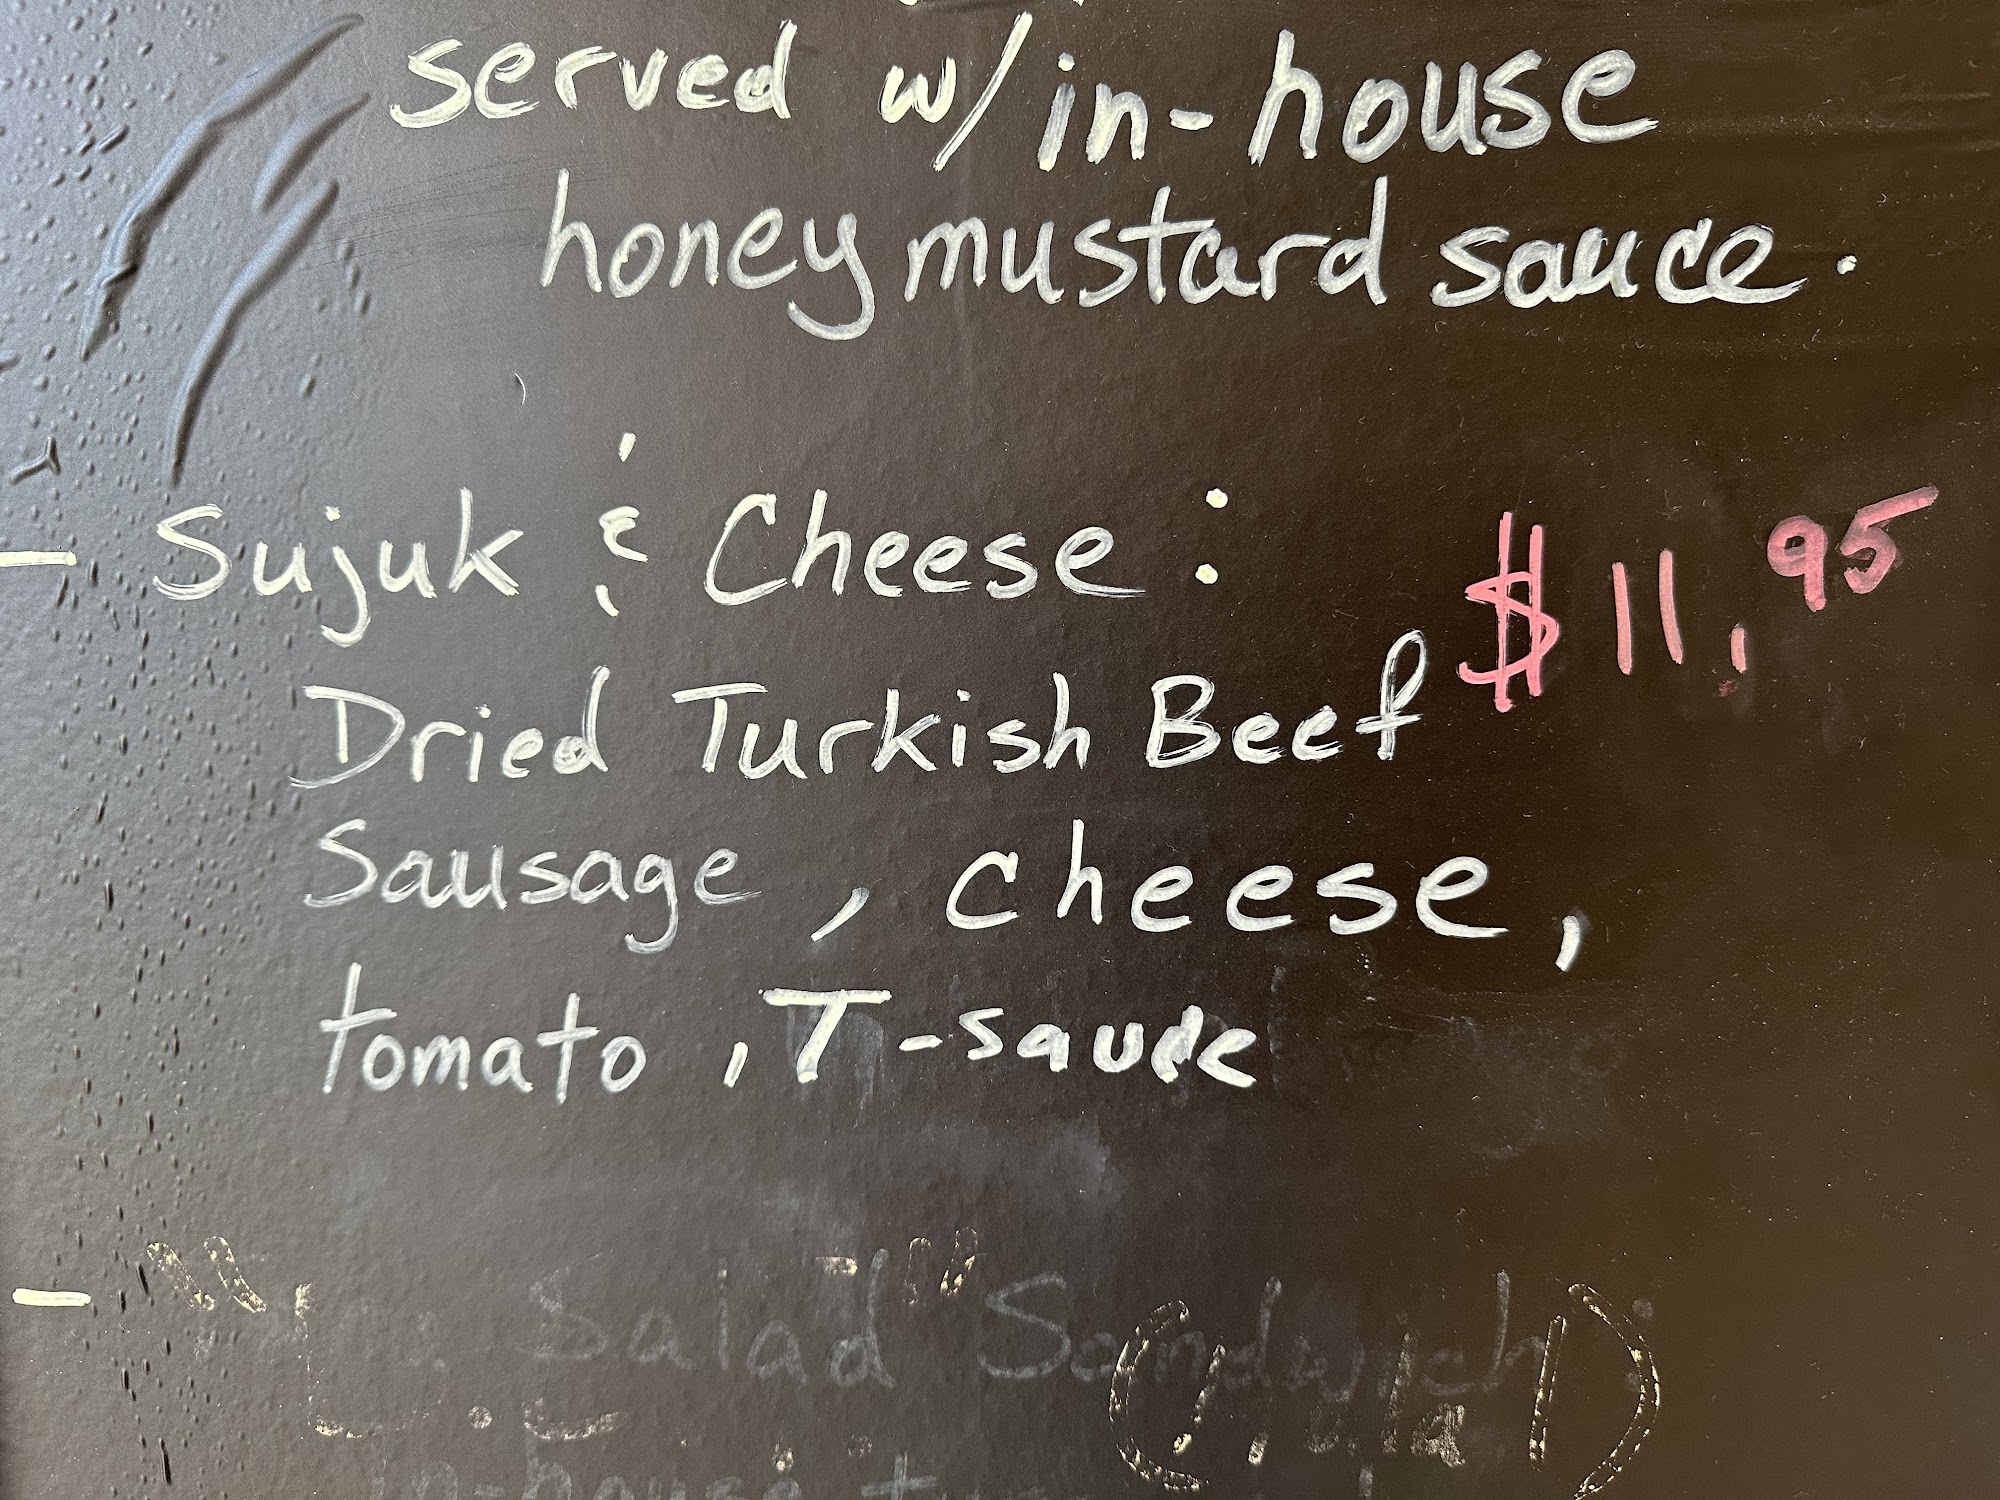 served w/in-house
honey mustard sauce.
- Sujuk & Cheese: $11.95
Dried Turkish Beef
Sausage, cheese,
tomato, T-sauce
- Salad" Sandwich:
in-house